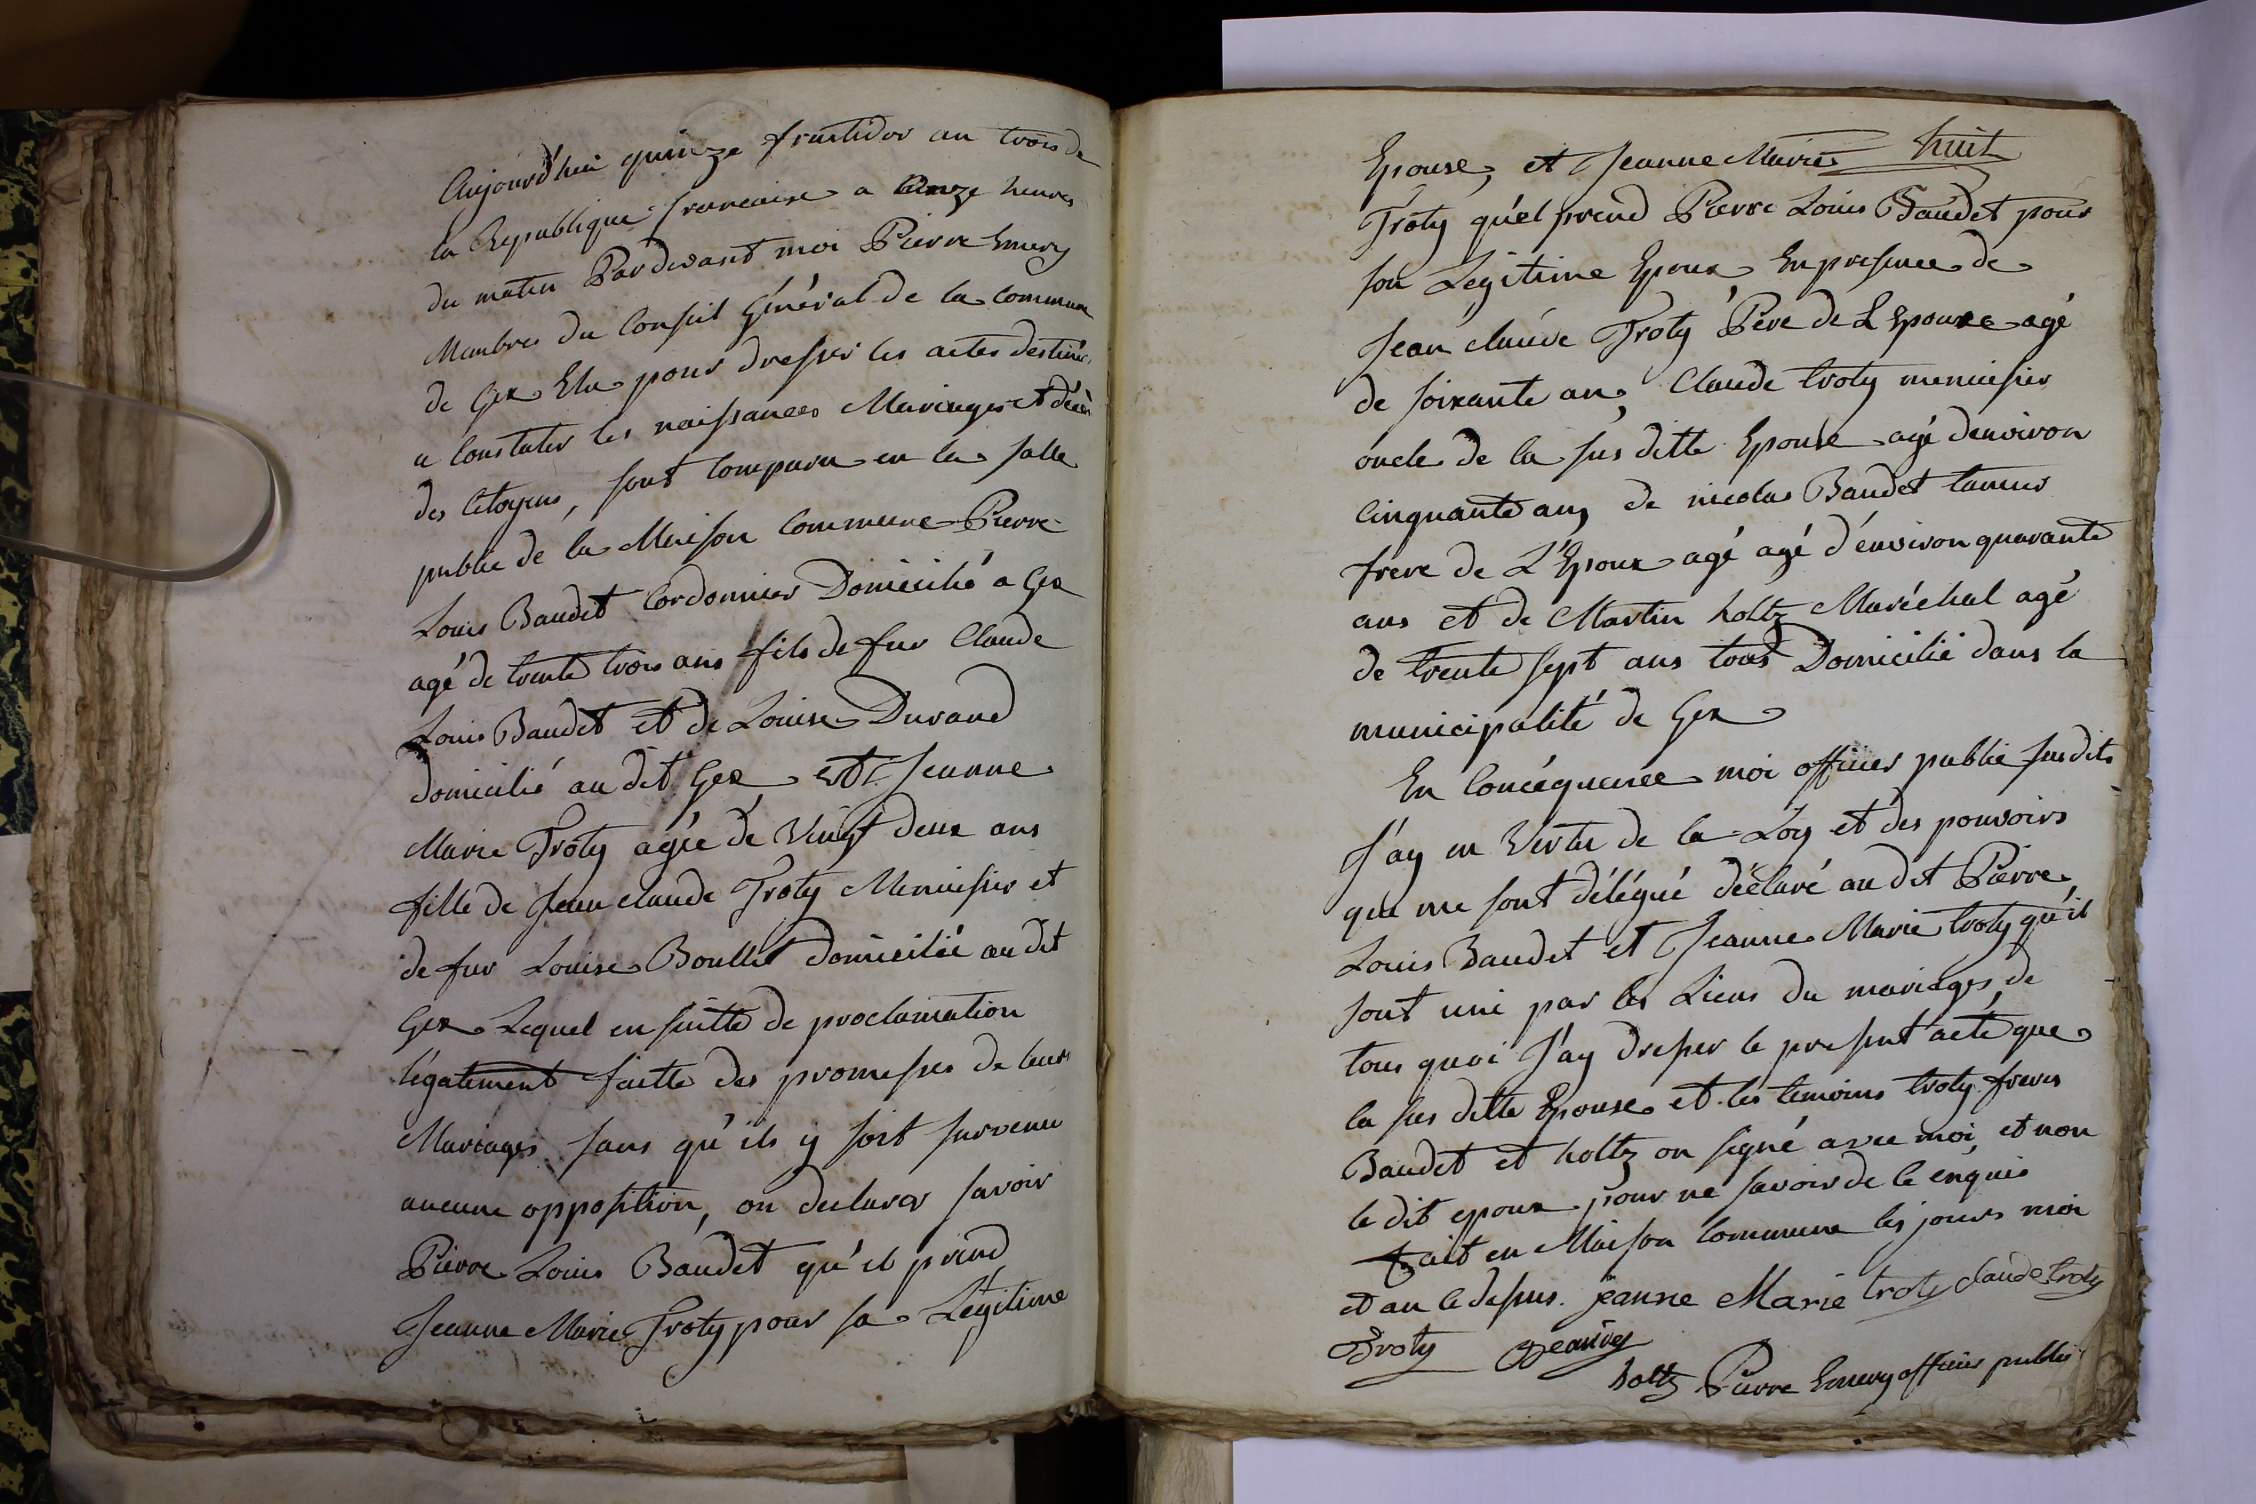 Aujourd'hui quinze fructidor an trois de
la Republique francaise a onze heures
du matin Pardevant moi Pierre Emery
Membres du Conseil Général de la Commune
de Gex Elu pour dresser les actes destinés
a Constater les naissances Mariages et décès
des Citoyens, sont Comparu en la salle
public de la Maison Commune Pierre
Louis Baudet Cordonnier Domicilié a Gex
agé de trente trois ans fils de fur Claude
Louis Baudet et de Louise Durand
domicilié au dit Gex et Jeanne
Marie Troty agée de Vingt deux ans
fille de Jean claude Troty Menuisier et
de fur Louise Boullet domicilié au dit
Gex Lequel en suitte de proclamation
légatement faitte des promesses de leurs
Mariages sans qu'ils y soit survenu
aucune opposition, on declarer savoir
Pierre Louis Baudet qu'il prend
Jeanne Marie Troty pour sa Légitime
huit
Epouse, et Jeanne Marie
Troty qu'el prend Pierre Louis Baudet pour
son Legitime Epoux En presence de
Jean claude Troty Père de L'Epouse agé
de soixante ans Claude troty menuisier
oncle de la sus ditte Epouse agé denviron
Cinquante ans, de nicolas Baudet tanneur
frere de L'Epoux agé agé d'environ quarante
ans et de Martin holtz Maréchal agé
de trente sept ans tous Domicilié dans la
municipalité de Gex
En Concéquence moi officier public susdits
J'ay en Vertu de la Loy et des pouvoirs
qui me sont délégué déclaré au dit Pierre
Louis Baudet et Jeanne Marie troty qu'il
sont uni par les Liens du mariages, de
tous quoi J'ay dresser le present acte que
la sus ditte Epouse et les temoins troty freres
Baudet et holtz on signé avec moi, et non
le dit epoux pour ne savoir de ce enquis
fait en Maison Commune les jours moi
et an ce dessus. jeanne Marie troty claude troty
Troty
holtz Pierre Emery officier public